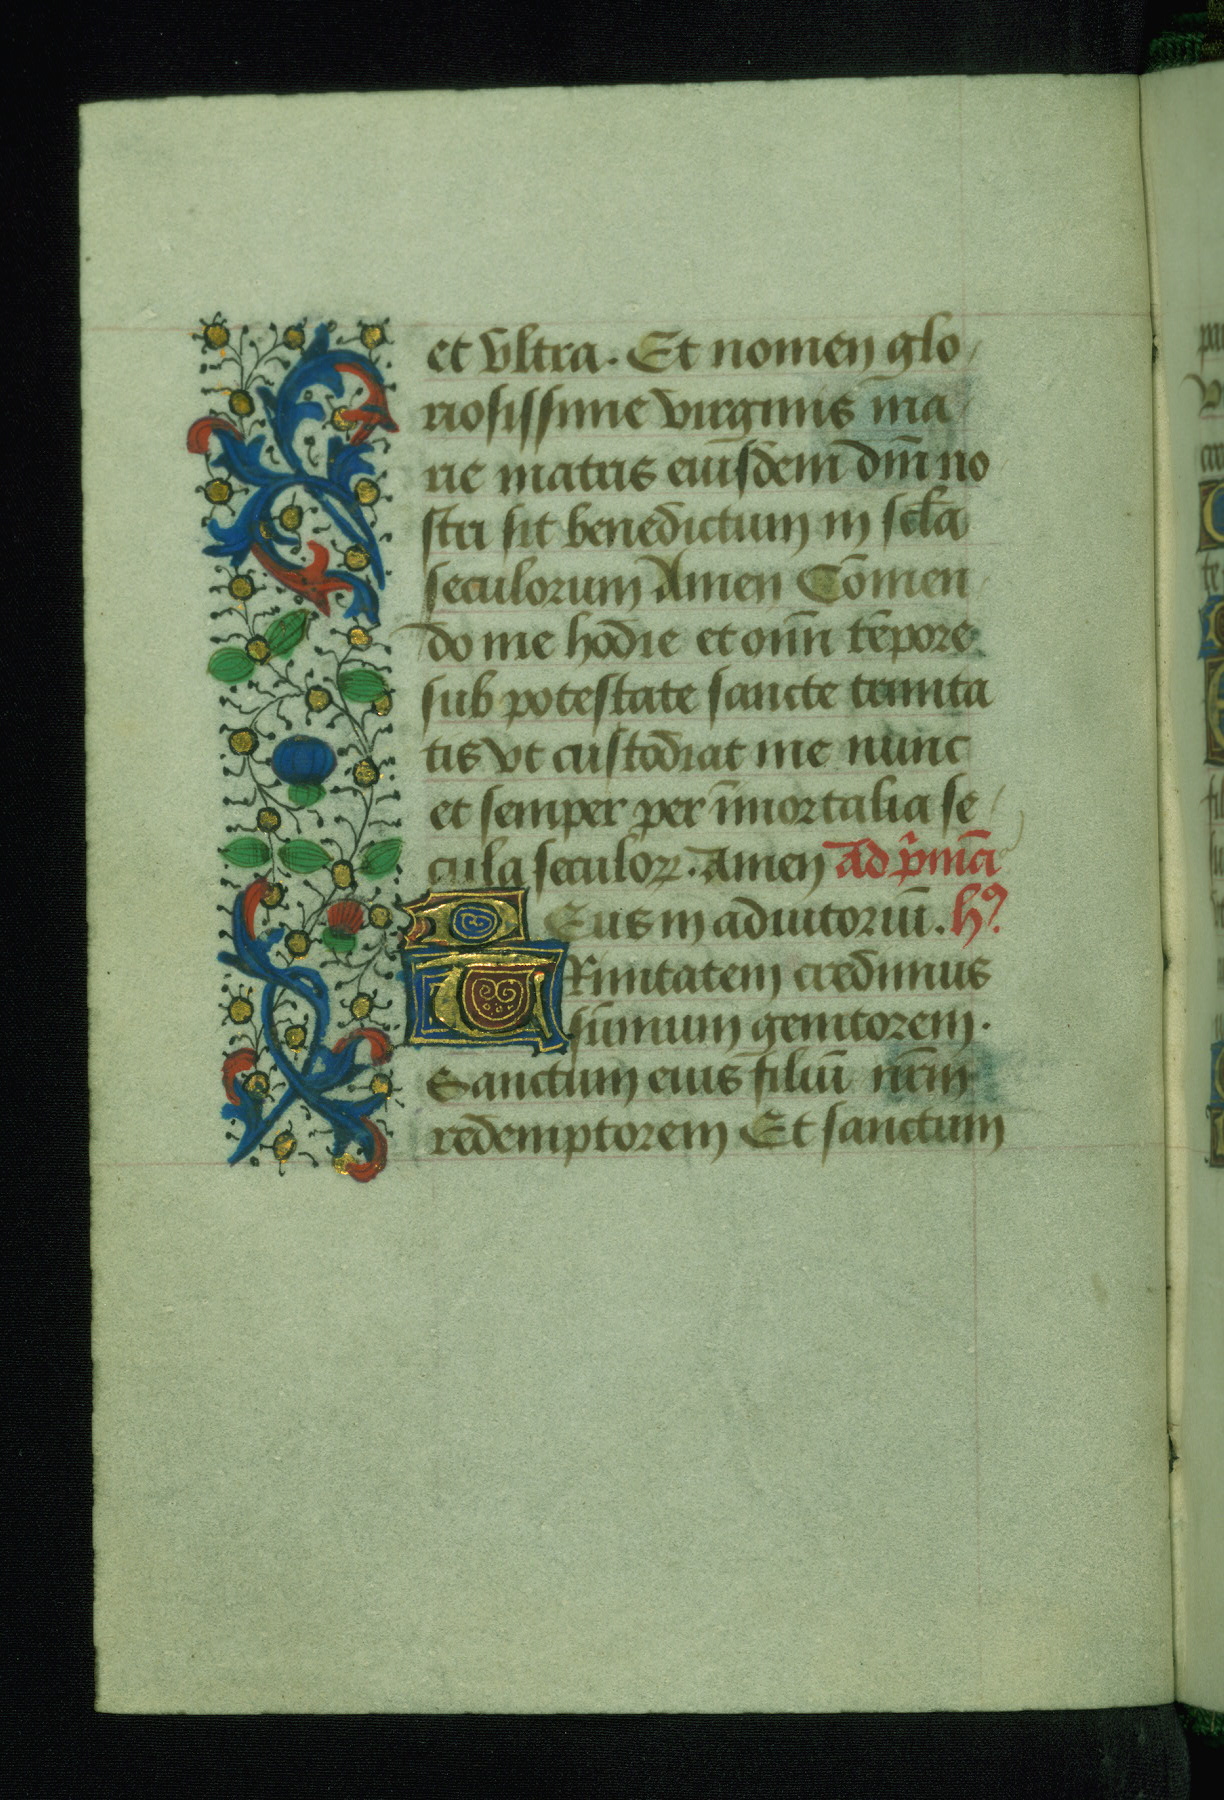 et vltra. Et nomen glo
riosissime virginis ma
rie matris eiusdem dn̄i no
stri sit benedictum in scl̄a
seculorum Amen Cōmen
do me hodie et om̄i tēpore
sub potestate sancte trinita
tis vt custodiat me nunc
et semper per īmortalia se
cula seculoꝝ. Amen Ad p̄mā
Deus in adiutoriū. hꝰ
TRinitatem credimus
sūmum genitorem.
Sanctum eius filiū nr̄m
redemptorem Et sanctum